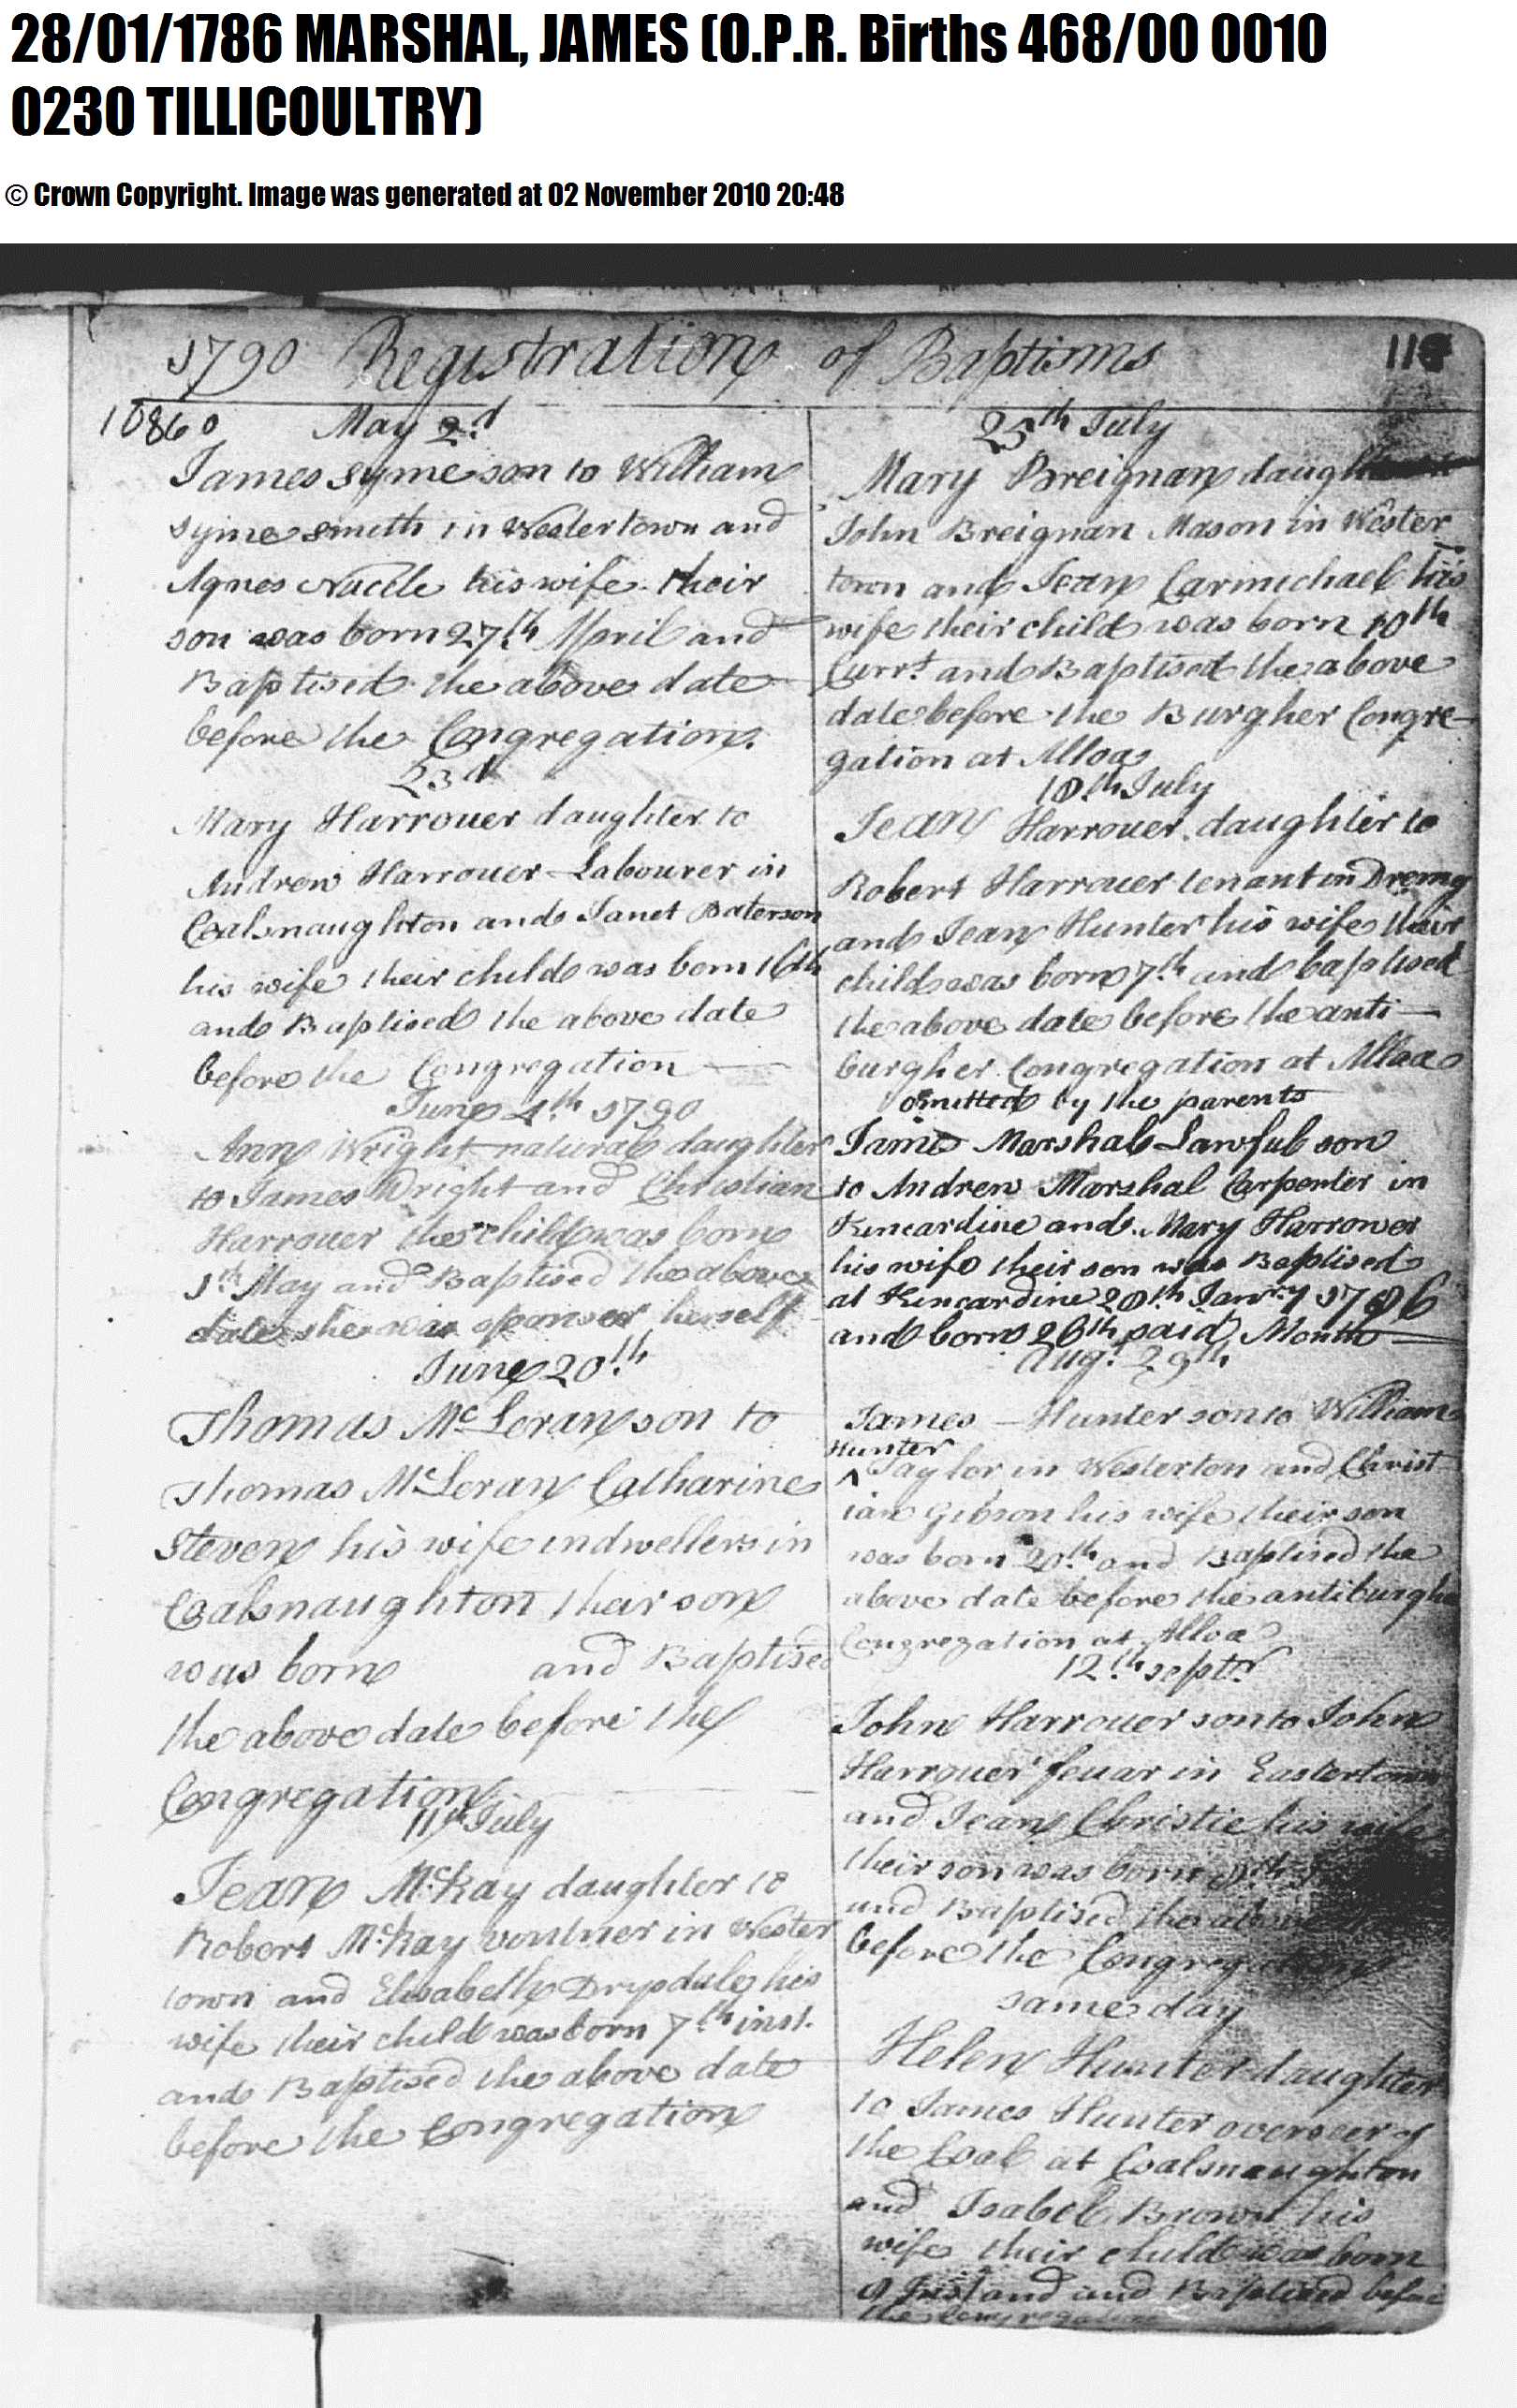 28/01/1786 MARSHAL, JAMES (O.P.R. Births 468/00 0010
0230 TILLICOULTRY)
© Crown Copyright. Image was generated at 02 November 2010 20:48
1790 Registration of Baptisms 118
10860 May 2d
James Syme son to William
Syme smith in Westertown and
Agnes his wife their
son was born 27th April and
Baptised the above date
before the Congregation.
23d
Mary Harrouer daughter to
Andrew Harrouer Labourer in
Coalsnaughton and Janet Paterson
his wife their child was born 16th
and Baptised the above date
before the Congregation
June 4th 1790
Ann Wright natural daughter
to James Wright and Christian
Harrouer the child was born
1th May and Baptised the above
date she was sponser herself
June 20th
Thomas McLeran son to
Thomas McLeran Catharine
Steven his wife indwellers in
Coalsnaughton their son
was born and Baptised
the above date before the
Congregation
11th July
Jean McKay daughter to
Robert McKay vintner in Wester
town and Elisabeth Drysdale his
wife their child was born 7th inst.
and Baptised the above date
before the Congregation
25th July
Mary Breignan daughter
John Breignan Mason in Wester
town and Jean Carmichael his
wife their child was born 10th
Currt and Baptised the above
date before the Burgher Congre-
gation at Alloa
18th July
Jean Harrouer daughter to
Robert Harrouer tenant in
and Jean Hunter his wife their
child was born 7th and baptised
the above date before the anti-
burgher Congregation at Alloa
omitted by the parents
James Marshal Lawful son
to Andrew Marshal Carpenter in
Kincardine and Mary Harrower
his wife their son was Baptised
at Kincardine 28th Janry 1786
and born 26th said Month
Augt 29th
James Hunter son to William
Hunter
^ Taylor in Westerton and Christ
ian Gibson his wife their son
was born 20th and Baptised the
above date before the antiburgher
Congregation at Alloa
12th Septr
John Harrouer son to John
Harrouer feuar in Eastertown
and Jean Christie his wife
their son was born 8th
and Baptised the above
before the Congregation
same day
Helen Hunter daughter
to James Hunter overseer of
the Coal at Coalsnaughton
and Isabel Brown his
wife their child was born
and Baptised before
the Congregation